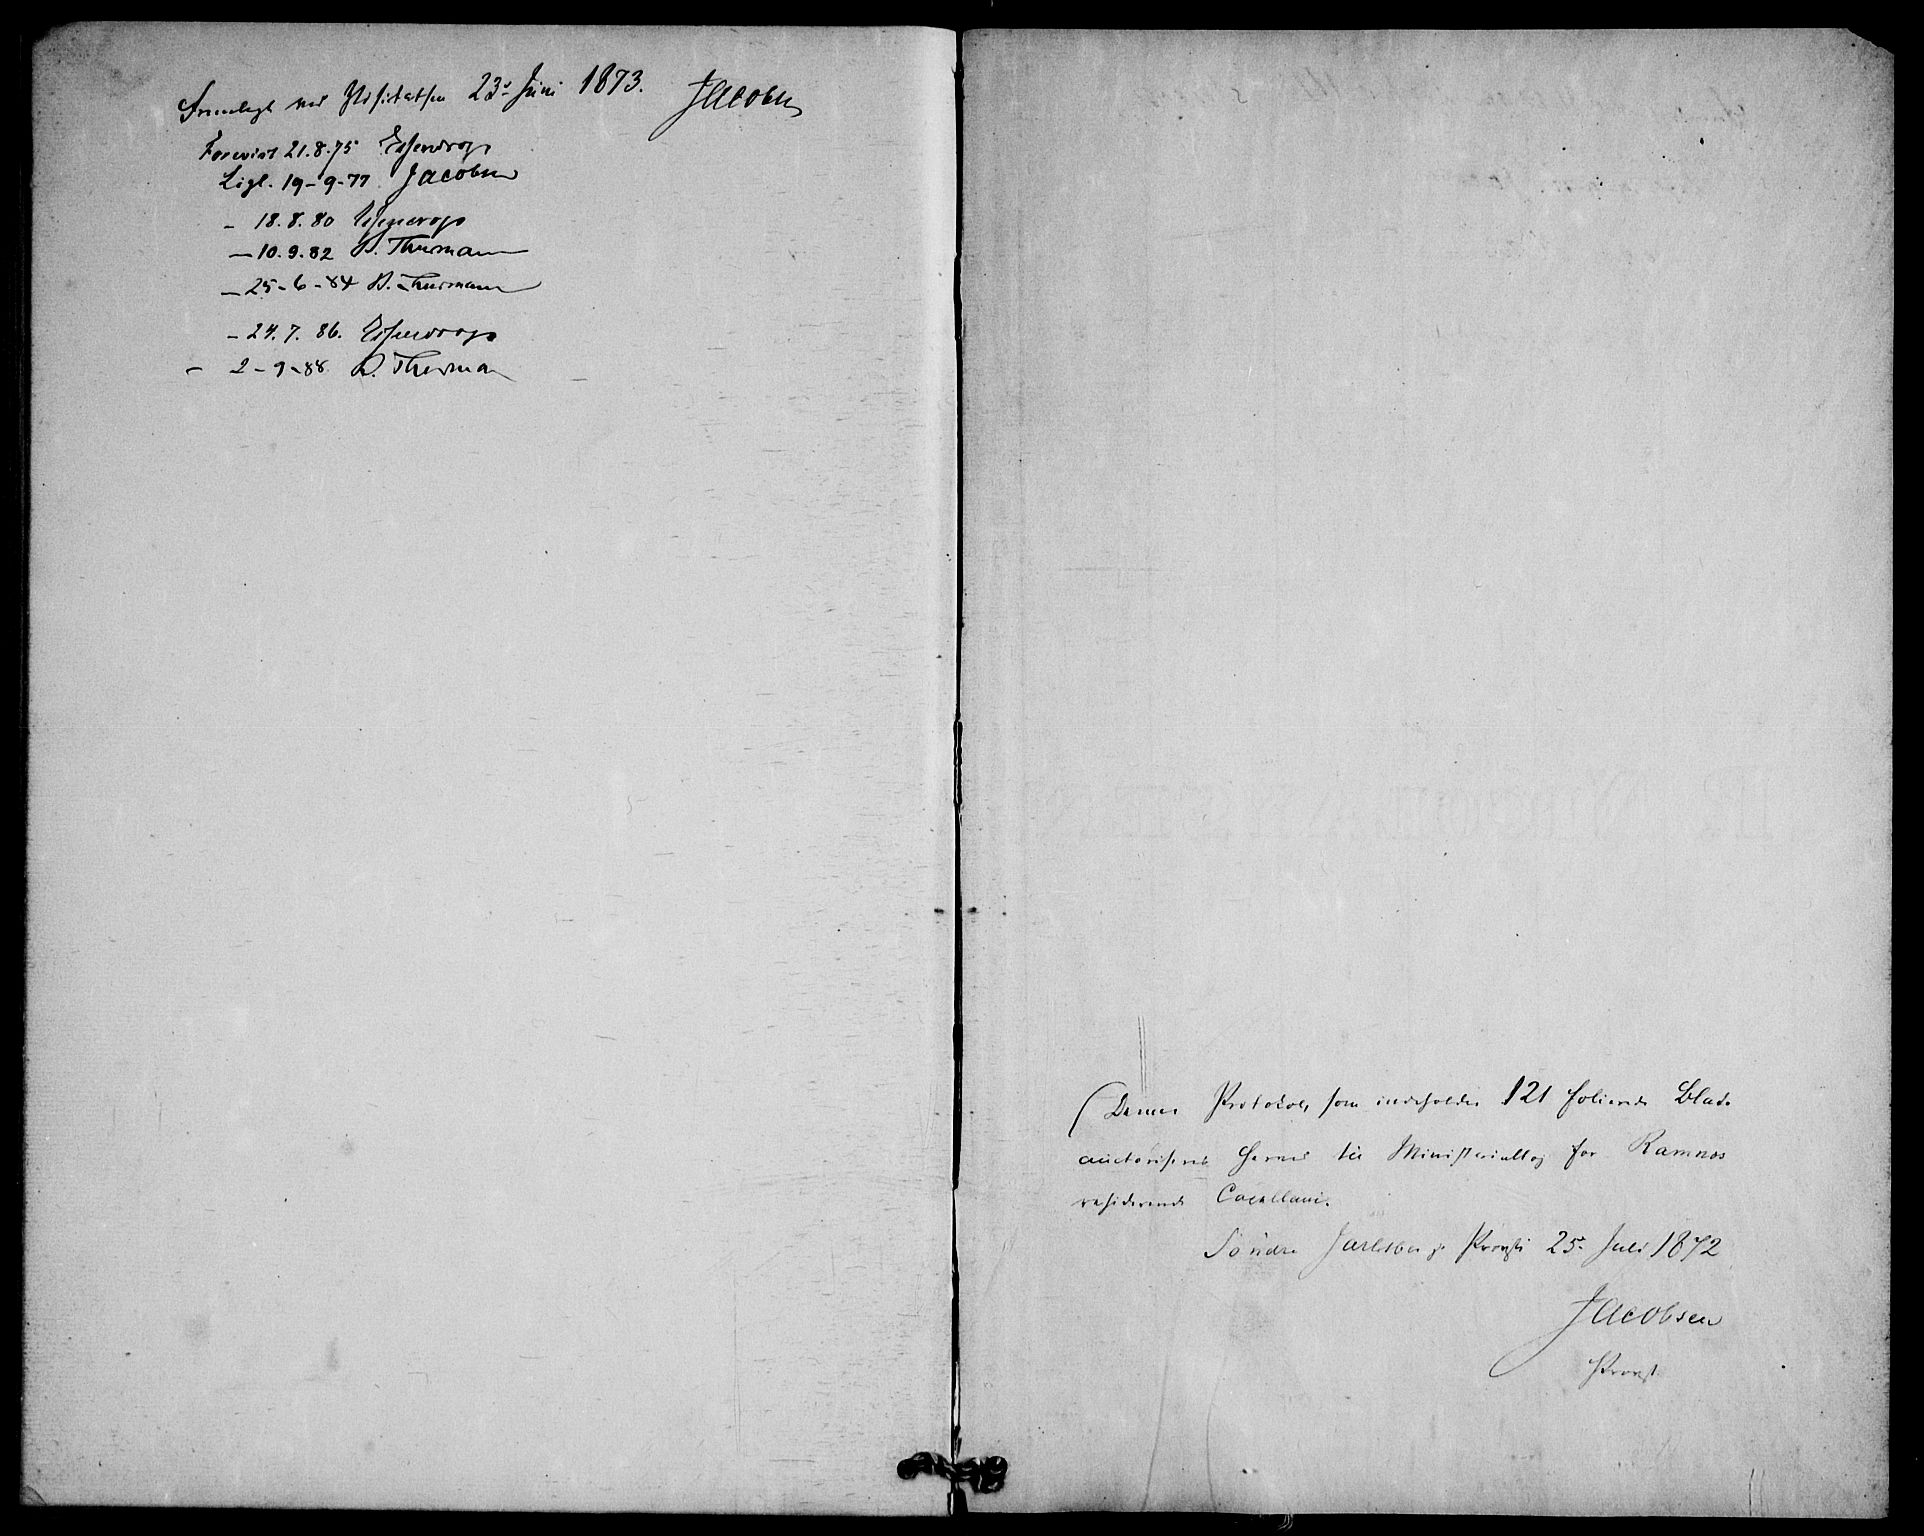 Fremlagt ved Visitatsen 23de Juni 1873. Jacobsen
Forevist 21.8.75 Essendrop
Ligl. 19-9-77 Jacobsen
- 18.8.80 Essendrop
- 10.9.82 D. Thurmann
- 25-6-84 D. Thurmann
- 24.7.86. Essendrop
- 2-9-88 D. Thurman
Denne Protocol, som indeholder 121 folierede Blade
auctoriseres herved til Ministerialbog for Ramnæs
residerende Capellani.
Søndre Jarlsbergs Provsti 25de Juli 1872
Jacobsen
Provst